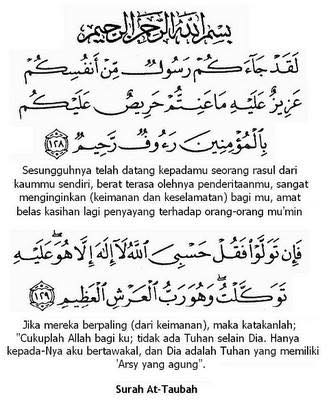 بسم الله الرحمن الرحيم
لَقَدْ جَآءَكُمْ رَسُولٌ مِّنْ أَنفُسِكُمْ
عَزِيزٌ عَلَيْهِ مَا عَنِتُّمْ حَرِيصٌ عَلَيْكُم
بِالْمُؤْمِنِينَ رَءُوفٌ رَّحِيمٌ ١٢٨
Sesungguhnya telah datang kepadamu seorang rasul dari
kaummu sendiri, berat terasa olehnya penderitaanmu, sangat
menginginkan (keimanan dan keselamatan) bagi mu, amat
belas kasihan lagi penyayang terhadap orang-orang mu'min
فَإِن تَوَلَّوْا۟ فَقُلْ حَسْبِيَ اللَّهُ لَآ إِلَٰهَ إِلَّا هُوَ ۖ عَلَيْهِ
تَوَكَّلْتُ ۖ وَهُوَ رَبُّ الْعَرْشِ الْعَظِيمِ ١٢٩
Jika mereka berpaling (dari keimanan), maka katakanlah;
"Cukuplah Allah bagi ku; tidak ada Tuhan selain Dia. Hanya
kepada-Nya aku bertawakal, dan Dia adalah Tuhan yang memiliki
'Arsy yang agung".
Surah At-Taubah